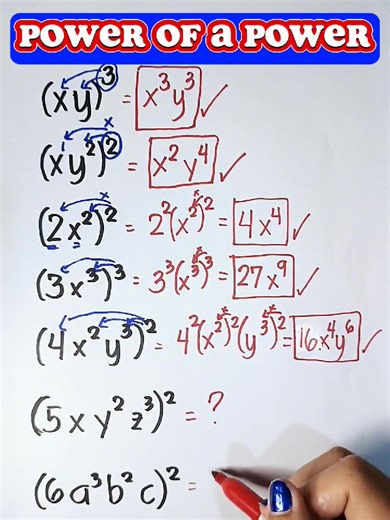 POWER OF A POWER
(xy)³ = x³y³ ✓
x
(xy²)² = x²y⁴ ✓
x
(2x²)² = 2²(x²)² = 4x⁴ ✓
(3x³)³ = 3³(x³)³ = 27x⁹ ✓
(4x²y³)² = 4²(x²)²(y³)² = 16x⁴y⁶ ✓
(5xy²z³)² = ?
(6a³b²c)² =